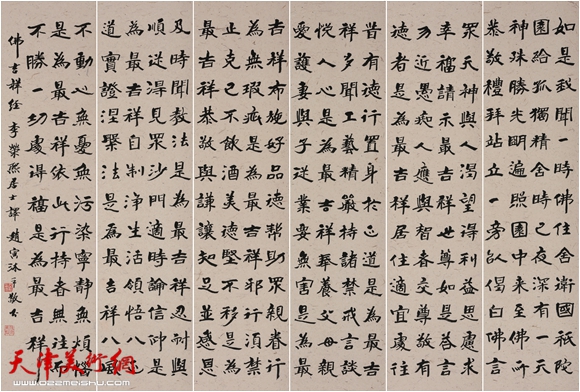 如是我聞一時佛住舍衛國祇陀
園給孤獨精舍時已夜深有一天
神殊勝光明遍照園中來至佛所
恭敬禮拜站立一旁以偈白佛言
眾天神與人渴望得利益思慮求
幸福請示最吉祥世尊以偈答言
勿近愚痴人應與智者交尊敬有
德者是為最吉祥居住適宜處往
昔有德行置身於正道是為最吉
祥多聞工藝精嚴持諸禁戒言談
悅人心是為最吉祥奉養父母親
愛護妻與子從業要無害是為最
吉祥布施好品德幫助眾親眷行
為無瑕疵是為最吉祥邪行須禁
止克己不飲酒美德堅不移是為
最吉祥恭敬與謙讓知足並感恩
及時聞教法是為最吉祥忍耐與
順從得見眾沙門適時論信仰是
為最吉祥自制淨生活領悟八正
道實證涅槃法是為最吉祥八風
不動心無憂無污染寧靜無煩惱
是為最吉祥依此行持者無往而
不勝一切處得福是為最吉祥
佛吉祥經 李榮熙居士譯 趙寅 敬書
天津美術網
www.022meishu.com